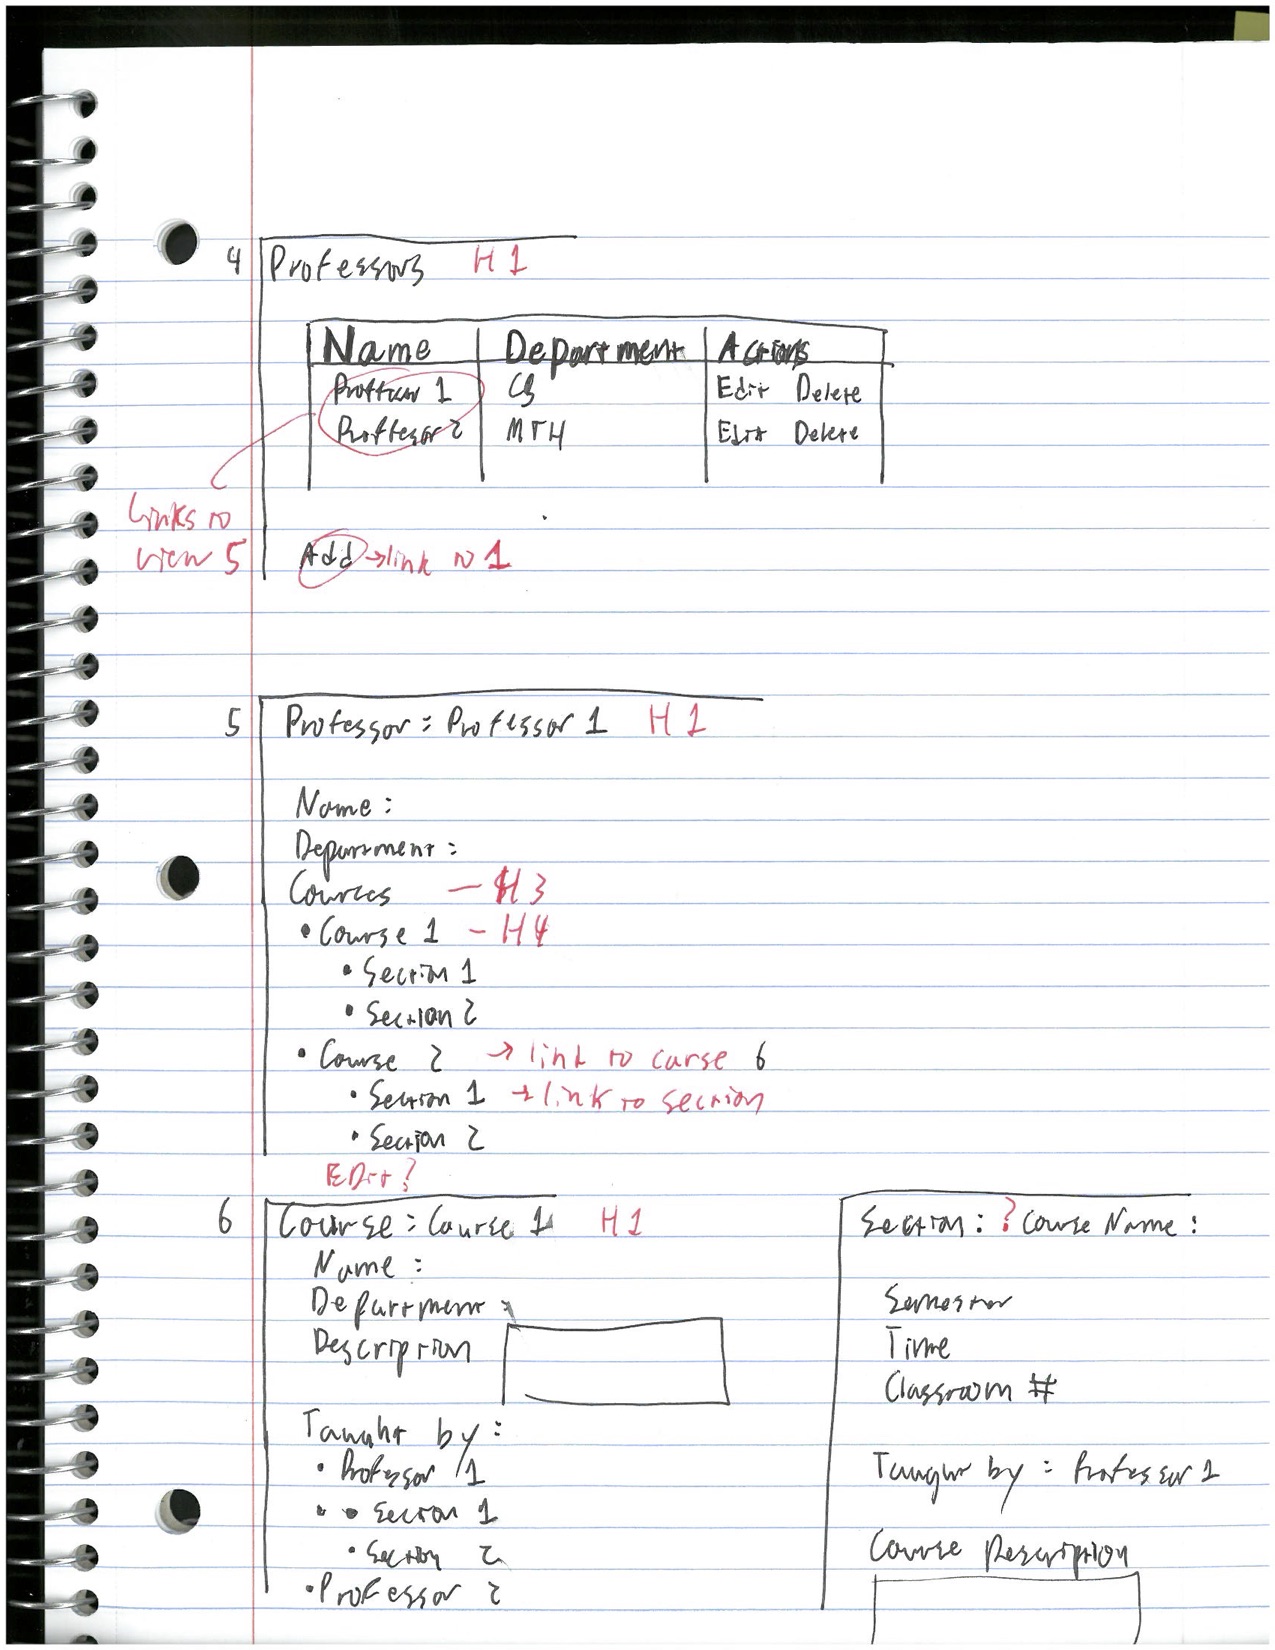 4 Professors H1
Name Department Actions
Professor 1 CS Edit Delete
Professor 2 MTH Edit Delete
Links to
view 5
Add → link to 1
5 Professor: Professor 1 H1
Name:
Department:
Courses — H3
• Course 1 - H4
• Section 1
• Section 2
• Course 2 → link to curse 6
• Section 1 → link to section
• Section 2
EDit?
6 Course: Course 1 H1
Name:
Department:
Description
Taught by:
• Professor 1
• • Section 1
• Section 2
• Professor 2
Section: ? Course Name:
Semester
Time
Classroom #
Taught by: Professor 1
Course Description